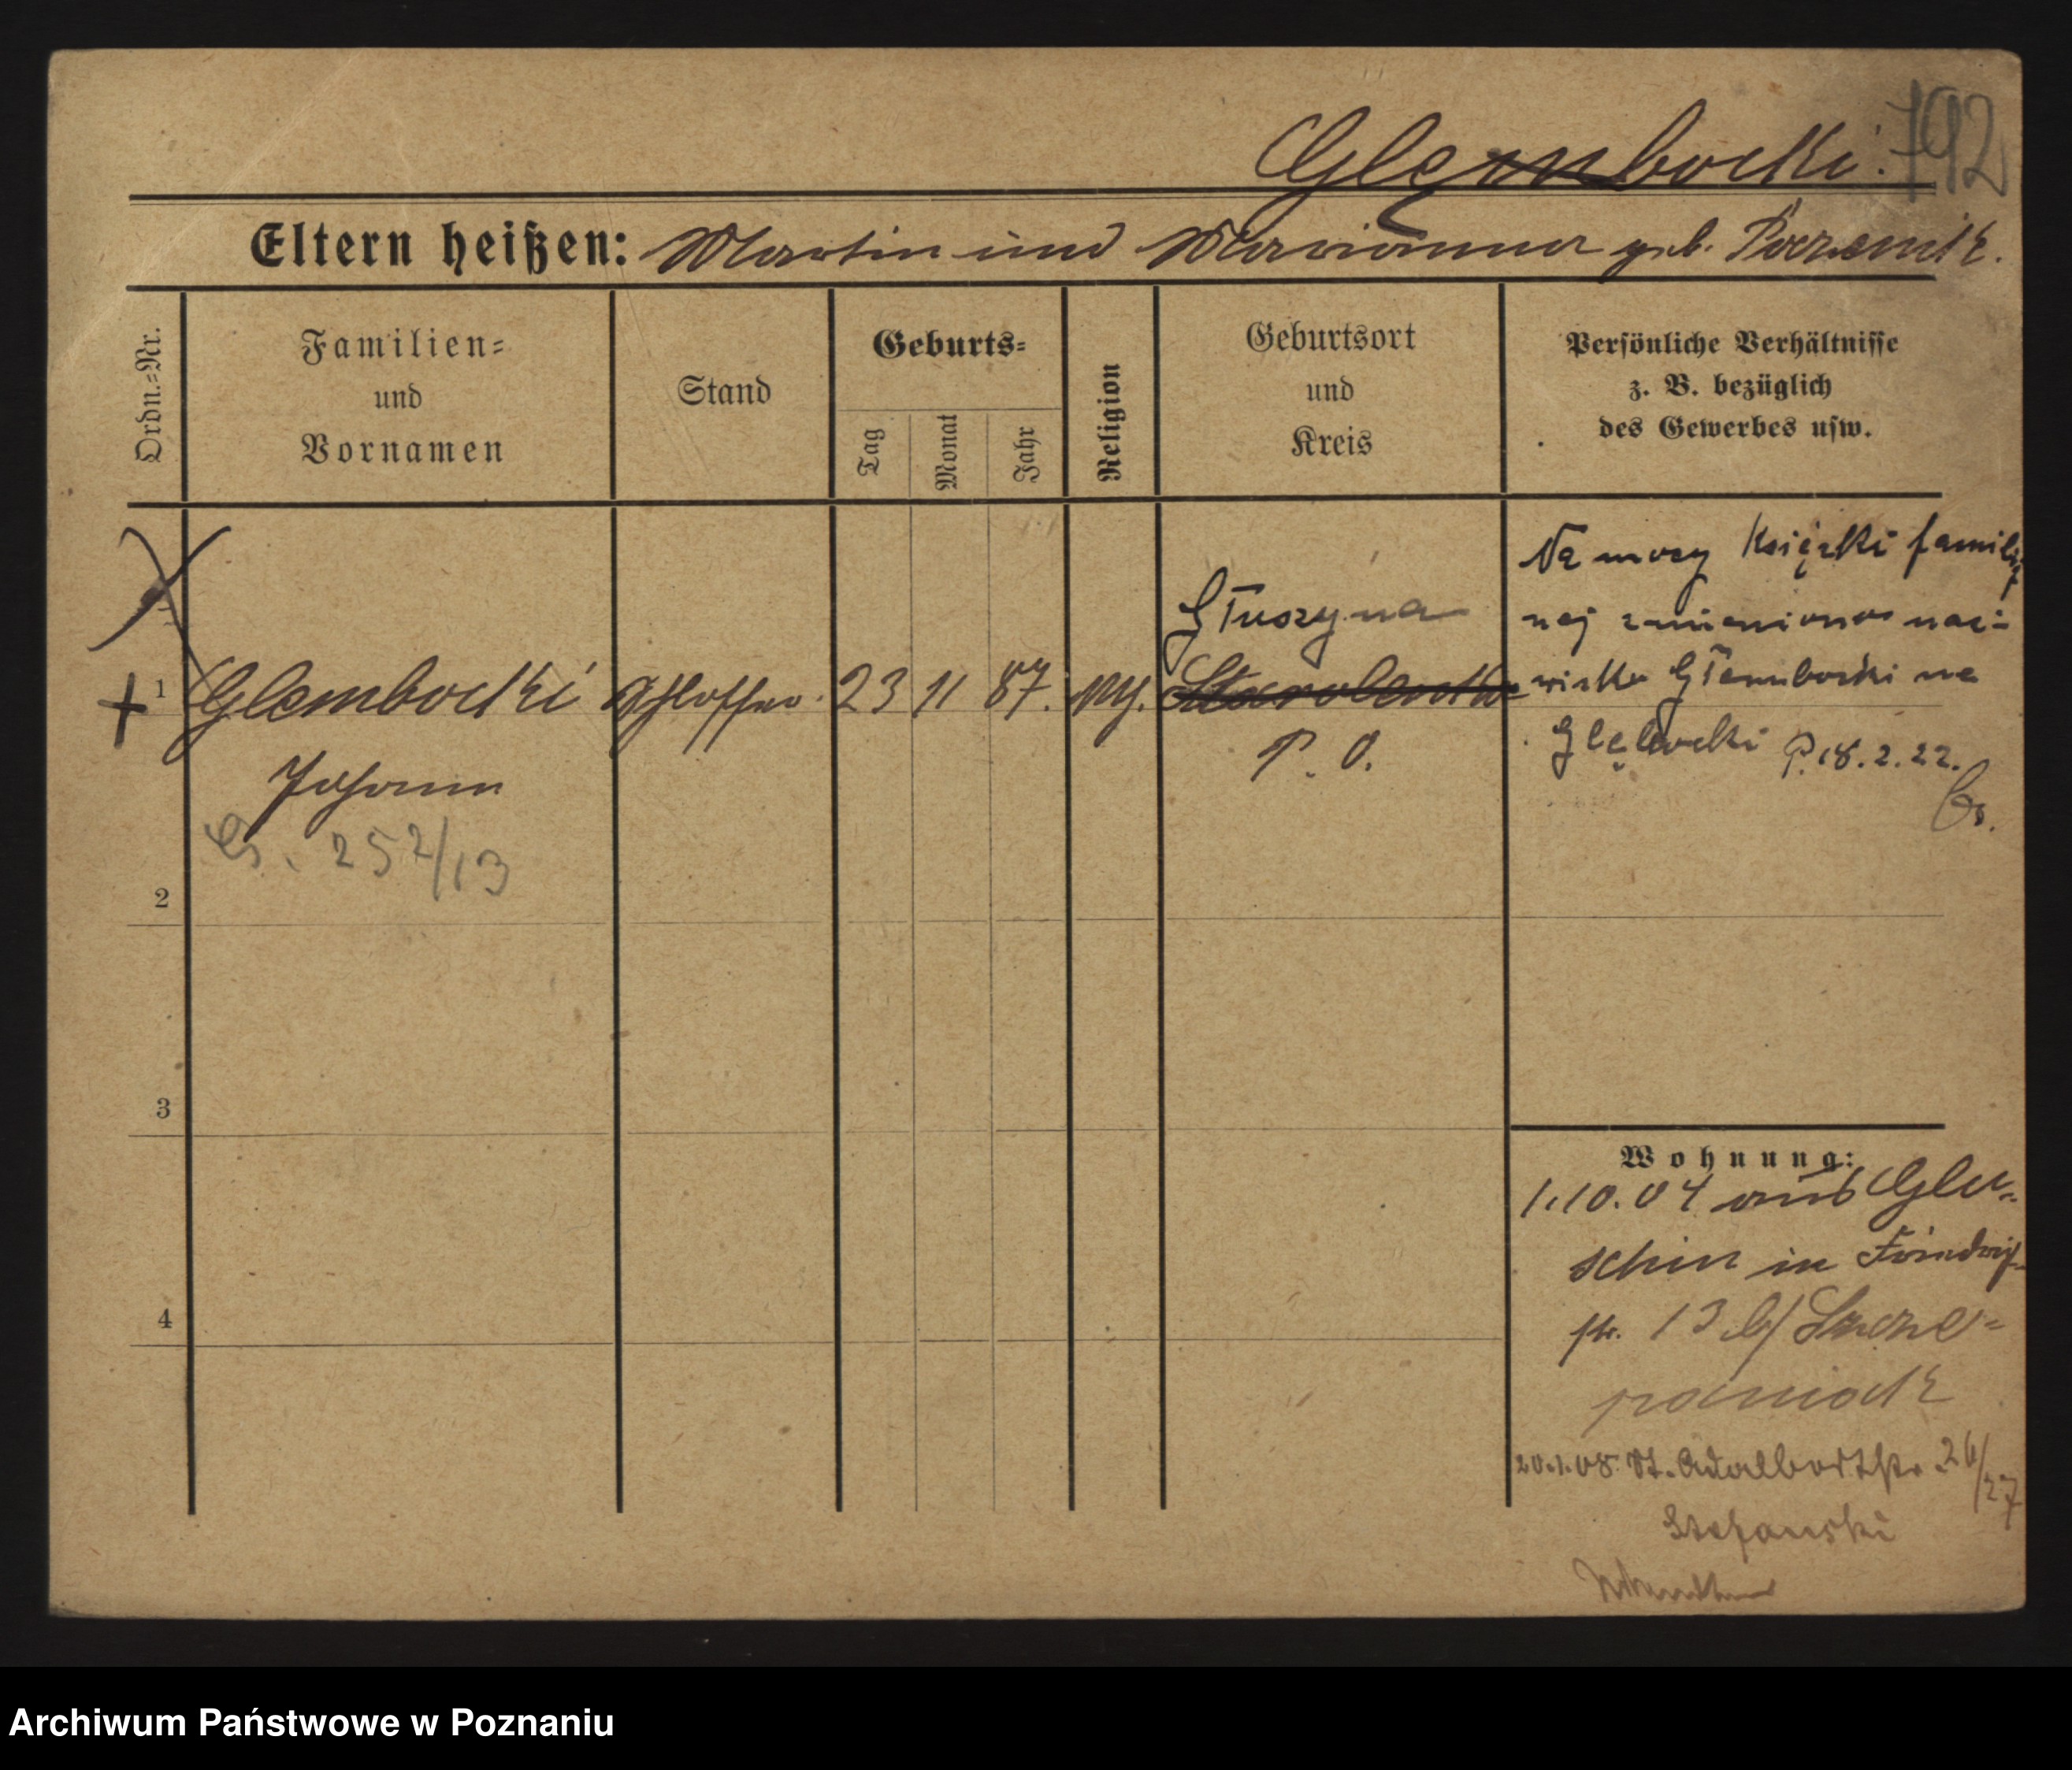 792
Glembocki.
Eltern heißen: Martin und Marianna geb. Poczemsk.
Ordn.=Nr.
Familien=
und
Vornamen
Stand
Geburts=
Tag
Monat
Jahr
Religion
Geburtsort
und
Kreis
Persönliche Verhältnisse
z. B. bezüglich
des Gewerbes usw.
1
Glembocki
Johann
G. 252/13
Schlosser
23 11 87.
Głuszyna
Starolenka
P. O.
Na mocy Książki familij
nej zmieniono naz=
wisko Głembocki na
Głębocki P. 18.2.22.
2
3
4
Wohnung:
1.10.04 aus Glu=
schin in Friedrich=
str. 13 b/ Szcze=
paniak
20.1.08. St. Adalbertstr. 26/27
Stefanski
Archiwum Państwowe w Poznaniu